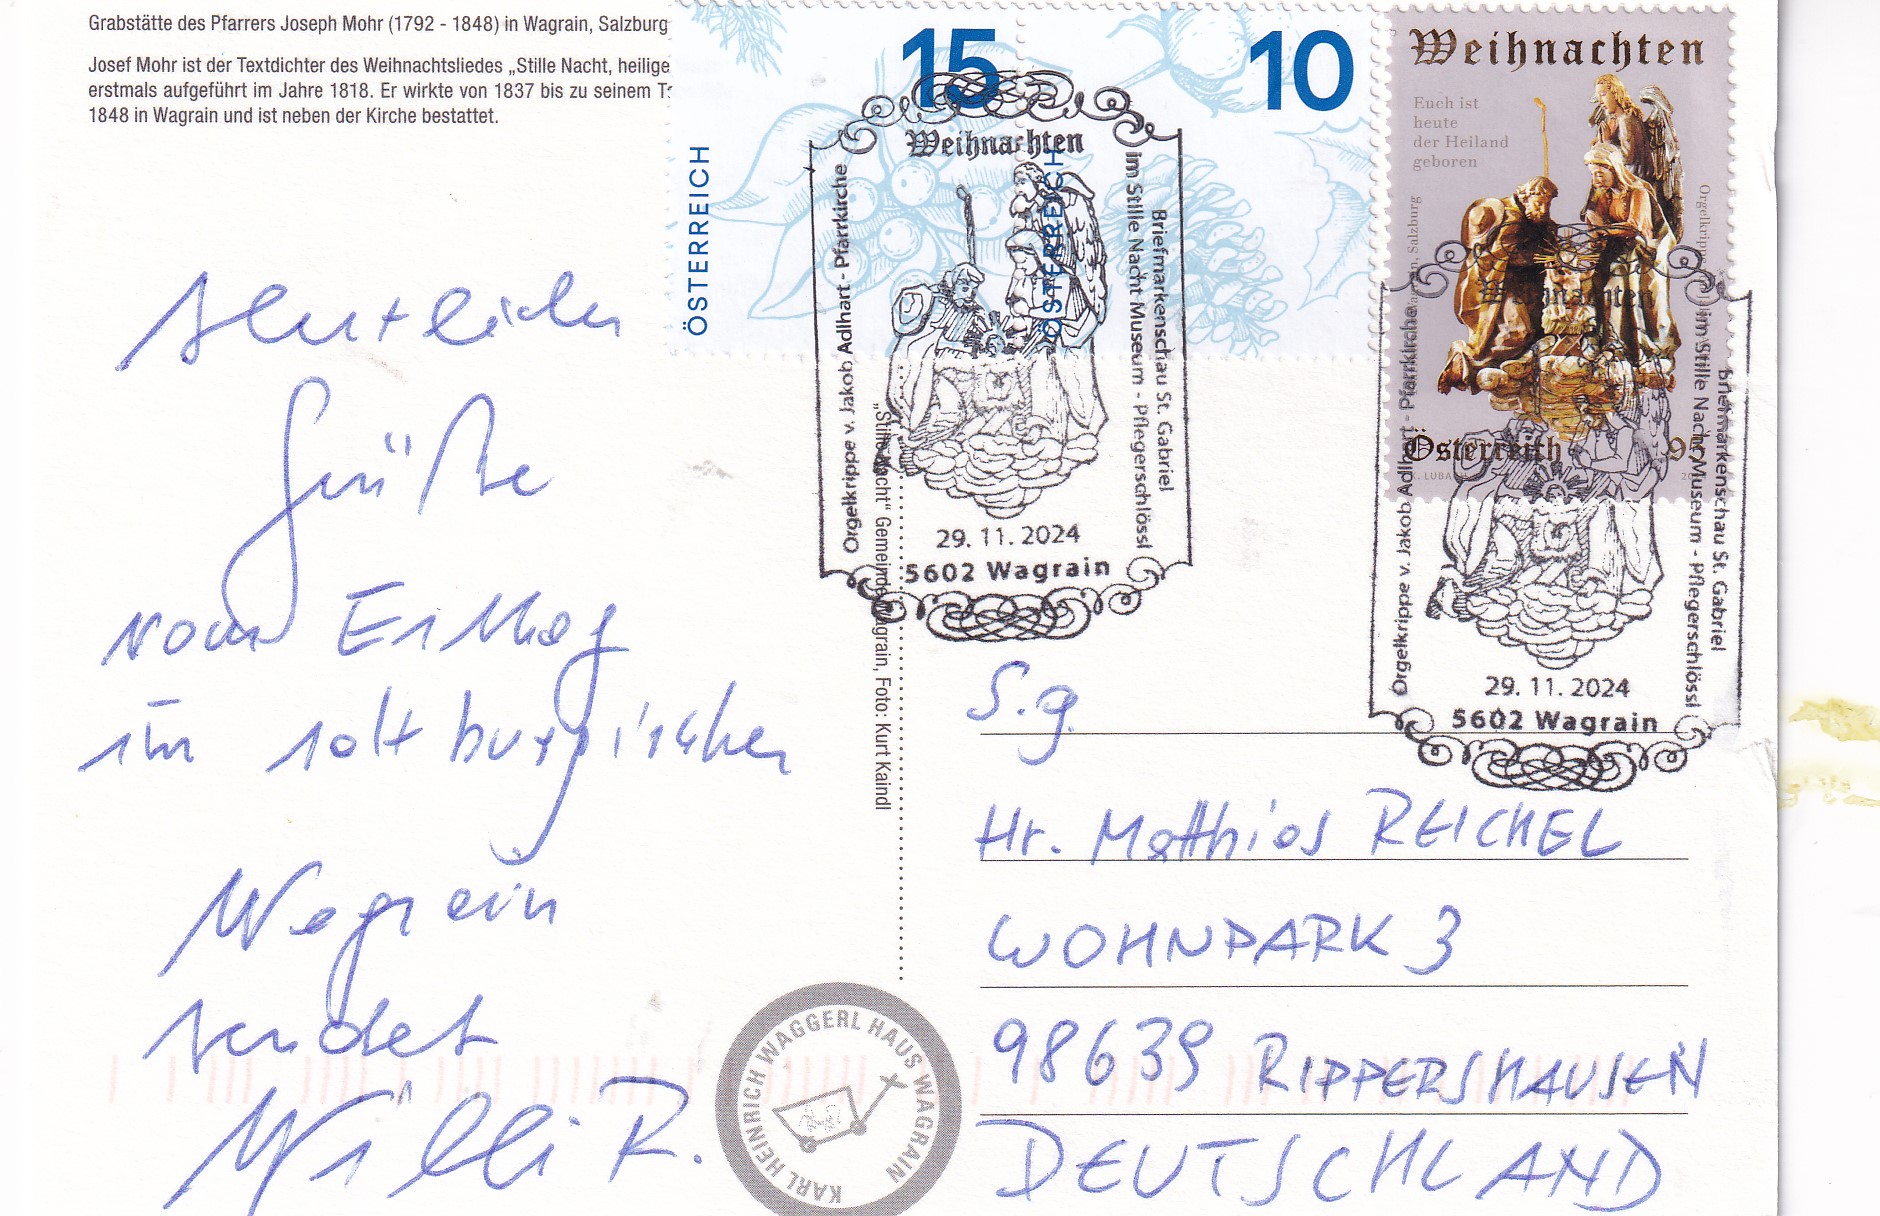 Grabstätte des Pfarrers Joseph Mohr (1792 - 1848) in Wagrain, Salzburg
Josef Mohr ist der Textdichter des Weihnachtsliedes „Stille Nacht, heilige
erstmals aufgeführt im Jahre 1818. Er wirkte von 1837 bis zu seinem
1848 in Wagrain und ist neben der Kirche bestattet.
15
ÖSTERREICH
10
ÖSTERREICH
Weihnachten
Euch ist
heute
der Heiland
geboren
Österreich 95
Weihnachten
Orgelkrippe v. Jakob Adlhart - Pfarrkirche
Briefmarkenschau St. Gabriel
im Stille Nacht Museum - Pflegerschlössl
29. 11. 2024
5602 Wagrain
Weihnachten
Orgelkrippe v. Jakob Adlhart - Pfarrkirche
Briefmarkenschau St. Gabriel
im Stille Nacht Museum - Pflegerschlössl
29. 11. 2024
5602 Wagrain
„Stille Nacht“ Gemeinde Wagrain, Foto: Kurt Kaindl
Grüße
vom
im salzburgischen
Wagrain
sendet
Willi R.
S.g.
Hr. Matthias REICHEL
WOHNPARK 3
98639 RIPPERSHAUSEN
DEUTSCHLAND
KARL HEINRICH WAGGERL HAUS WAGRAIN